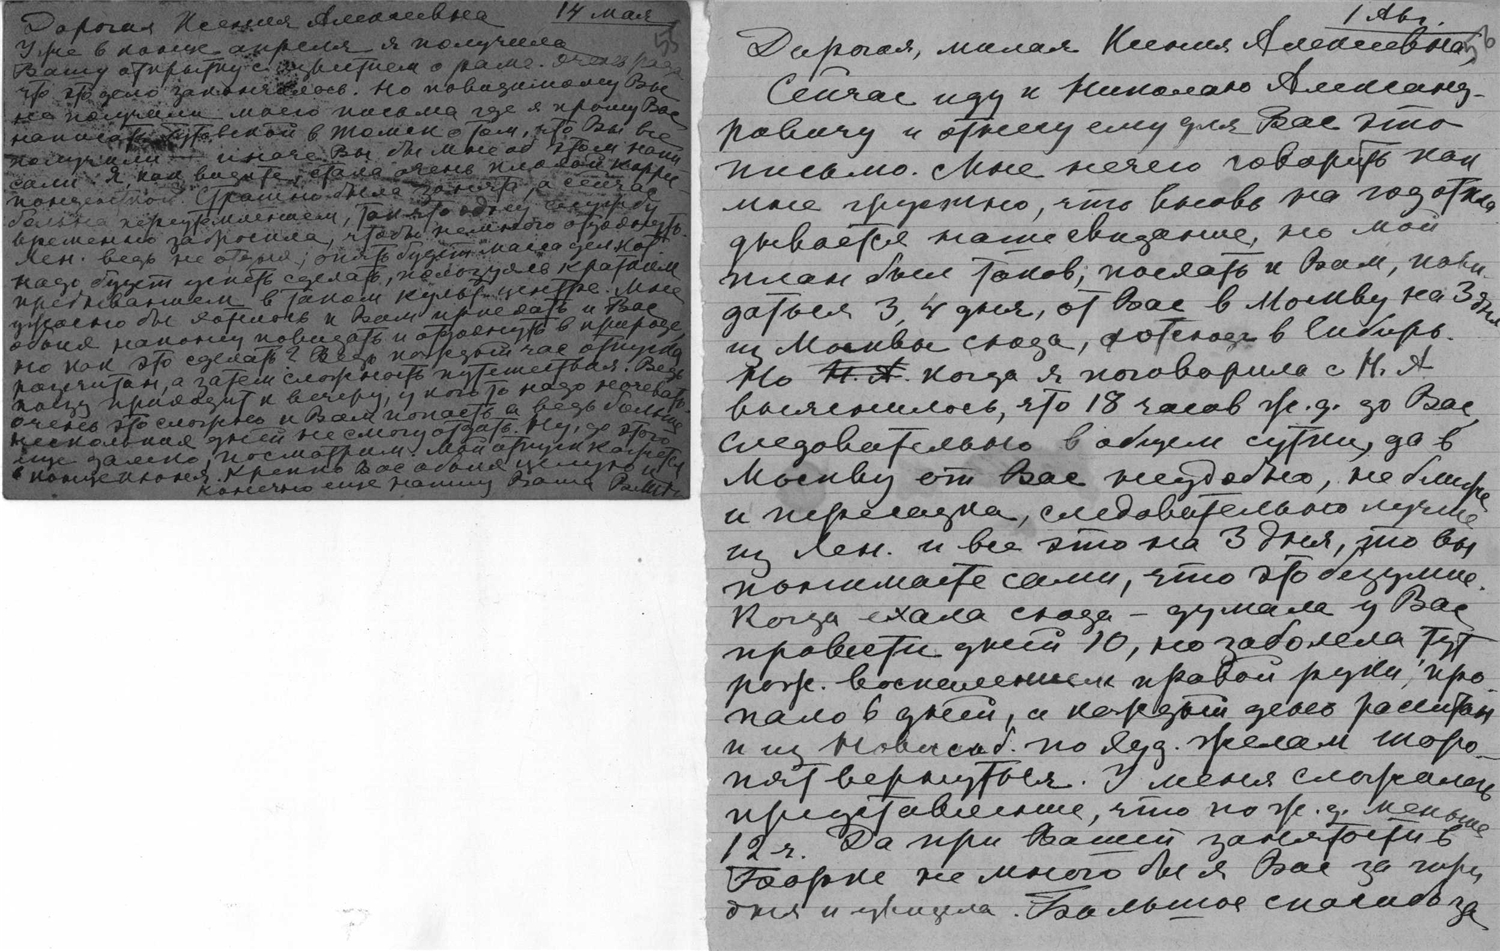 14 мая
55
Дорогая Ксения Алексеевна
Уже в конце апреля я получила
Вашу открытку с известием о раме. Очень рада
что это дело закончилось. Но повидимому Вы
не получили моего письма где я прошу Вас
написать Бутовской в Томск о том, что Вы все
получили иначе Вы бы мне об этом напи
сали. Я, как видите, стала очень плохой корри-
понденткой. Страшно была занята, а сейчас
больна переутомлением, так что одну службу
временно забросила, чтобы немного отдохнуть.
Лен. ведь не отдых, опять будет масса дел кот.
надо будет успеть сделать, пользуясь кратким
пребыванием в таком культ. центре. Мне
ужасно бы хотелось к Вам приехать и Вас
обоих наконец повидать и отдохнуть в природе,
но как это сделать? Ведь каждый час отпуска
рассчитан, а затем сложность путешествия. Ведь
поезд приходит к вечеру, у кого то надо ночевать.
очень это сложно к Вам попасть, а ведь больше
нескольких дней не смогу отдать. Ну, до этого
еще далеко, посмотрим. Мой отпуск кажется
в конце июня. Крепко Вас обоих целую и
конечно еще напишу Ваша
1 Авг.
56
Дорогая, милая Ксения Алексеевна,
Сейчас иду к Николаю Александ-
ровичу и отнесу ему для Вас это
письмо. Мне нечего говорить как
мне грустно, что вновь на год откла
дывается наше свидание, но мой
план был таков, поехать к Вам, пови-
даться 3, 4 дня, от Вас в Москву на 3 дня
из Москвы сюда, а отсюда в Сибирь.
Но Н. А. когда я поговорила с Н. А
выяснилось, что 18 часов ж. д. до Вас,
следовательно в общем сутки, да в
Москву от Вас неудобно, не ближе
и пересадка, следовательно лучше
из Лен. и все это на 3 дня, то вы
понимаете сами, что это безумие.
Когда ехала сюда – думала у Вас
провести дней 10, но заболела тут
рож. воспалением правой руки, про-
пало 6 дней, а каждый день рассчитан
и из Новосиб. по худ. делам торо-
пят вернуться. У меня сложилось
представление, что по ж. д. меньше
12 ч. Да при Вашей занятости в
Боорке не много бы я Вас за три
дня и увидела. Большое спасибо за